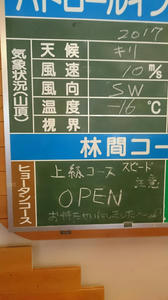 パトロールイン
2017
気象状況(山頂)
天候 キリ
風速 10 m/s
風向 SW
温度 -16 ℃
視界
林間コー
ヒョータンコース
上級コース スピード注意
OPEN
お待たせいたしました〜